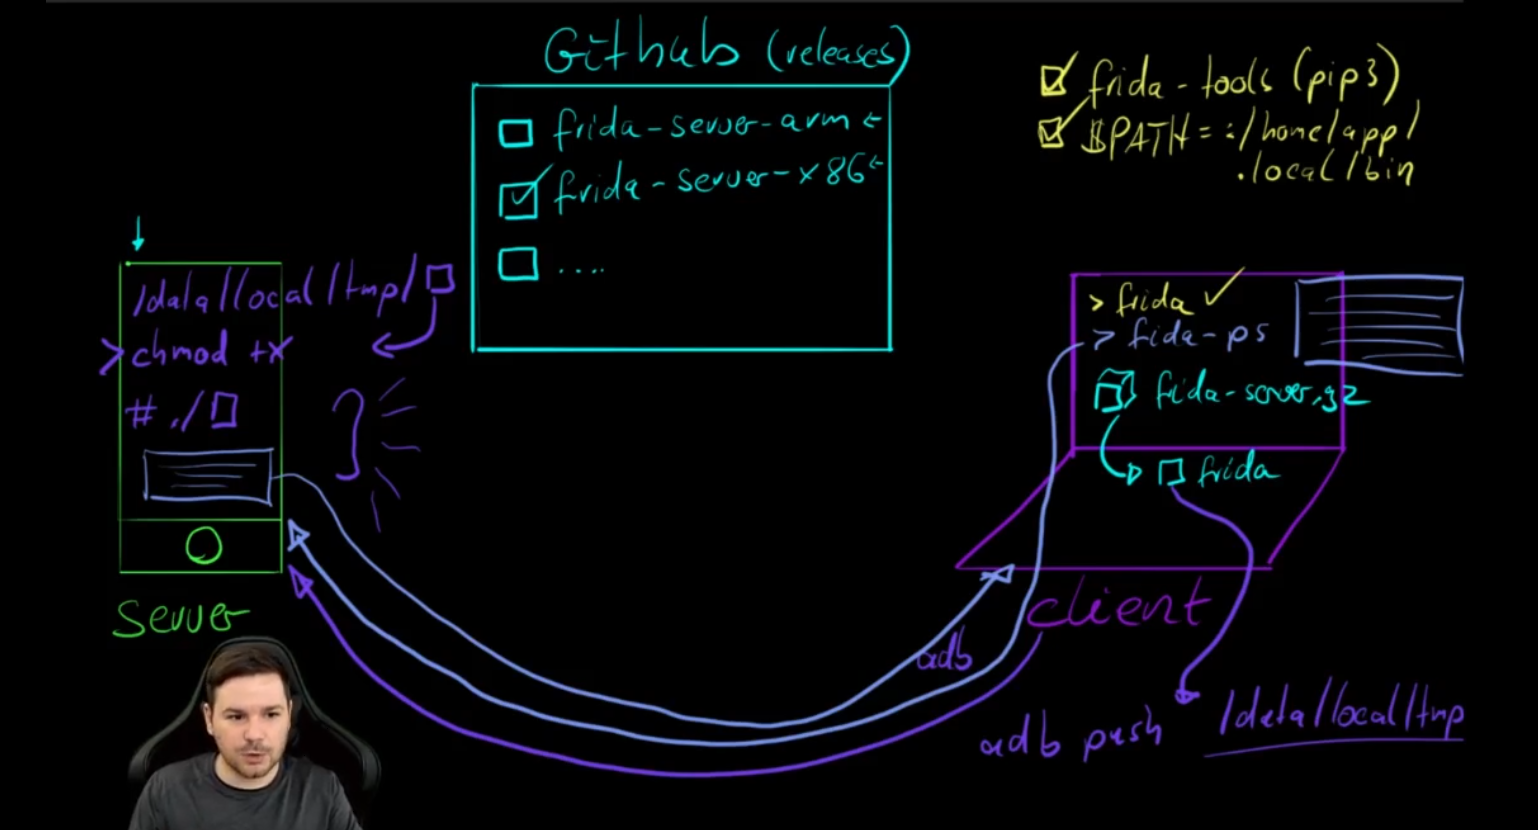 Github (releases)
frida-server-arm ←
frida-server-x86 ←
....
frida-tools (pip3)
$PATH = :/home/app/
.local/bin
/data/local/tmp/
> chmod +x
# ./
Server
> frida ✓
> fida-ps
frida-server.gz
frida
client
adb
adb push /data/local/tmp